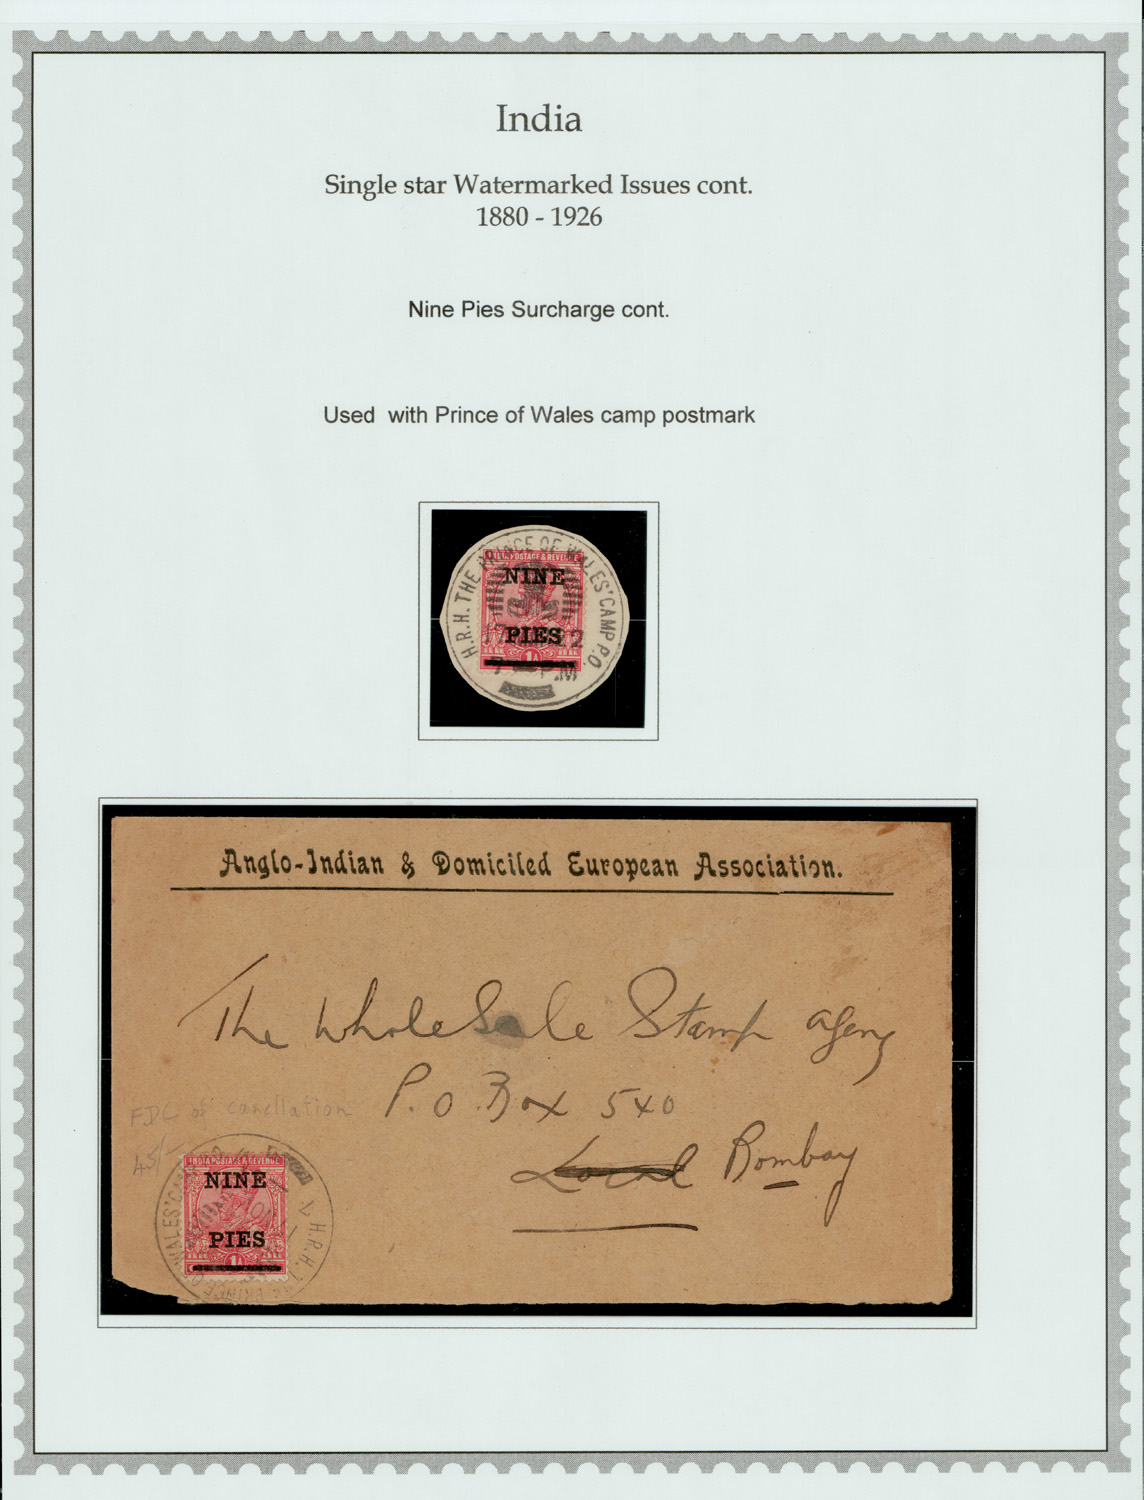 India
Single star Watermarked Issues cont.
1880 - 1926
Nine Pies Surcharge cont.
Used with Prince of Wales camp postmark
H.R.H. THE PRINCE OF WALES' CAMP P.O.
INDIA POSTAGE & REVENUE
NINE
PIES
1A
P.M
Anglo-Indian & Domiciled European Association.
The Whole Sale Stamp agency
P.O. Box 540
Local Bombay
FDC of canellation
45/-
INDIA POSTAGE & REVENUE
NINE
PIES
1A
H.R.H. PRINCE WALES'